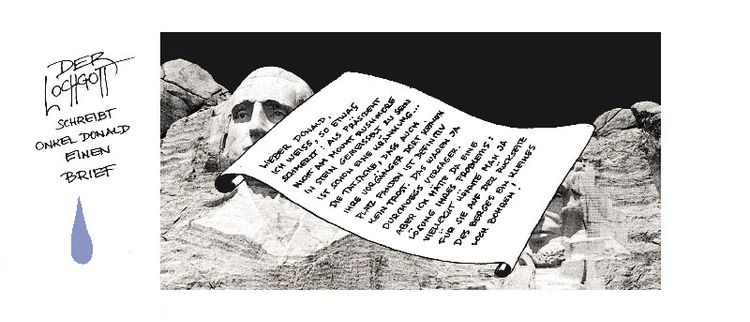 DER
LOCHGOTT
SCHREIBT
ONKEL DONALD
EINEN
BRIEF
LIEBER DONALD!
ICH WEISS, SO ETWAS
SCHMERZT: ALS PRÄSIDENT
NICHT AM MOUNT RUSHMORE
IN STEIN GEMEISSELT ZU SEIN
IST SCHON EINE KRÄNKUNG...
DIE TATSACHE, DASS AUCH
IHRE VORGÄNGER DORT KEINEN
PLATZ FANDEN IST DEFINITIV
KEIN TROST: DAS WAREN JA
DURCHWEGS VERSAGER.
ABER ICH HÄTTE DA EINE
LÖSUNG IHRES PROBLEMS:
VIELLEICHT KÖNNTE MAN JA
FÜR SIE AUF DER RÜCKSEITE
DES BERGES EIN KLEINES
LOCH BOHREN!